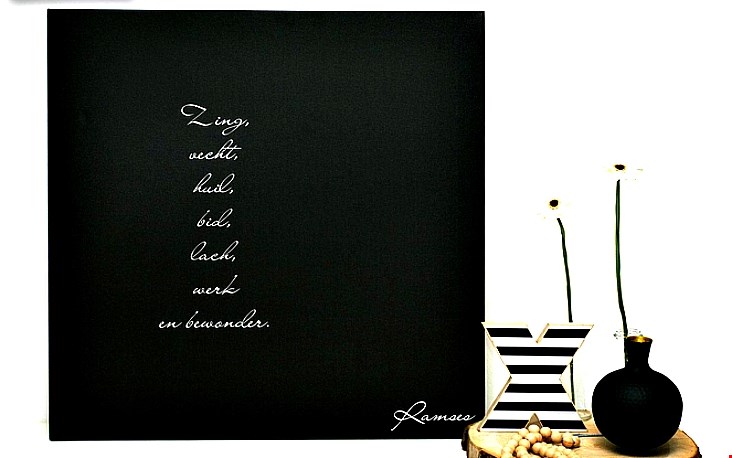 Zing,
vecht,
huil,
bid,
lach,
werk
en bewonder.
Ramses
X